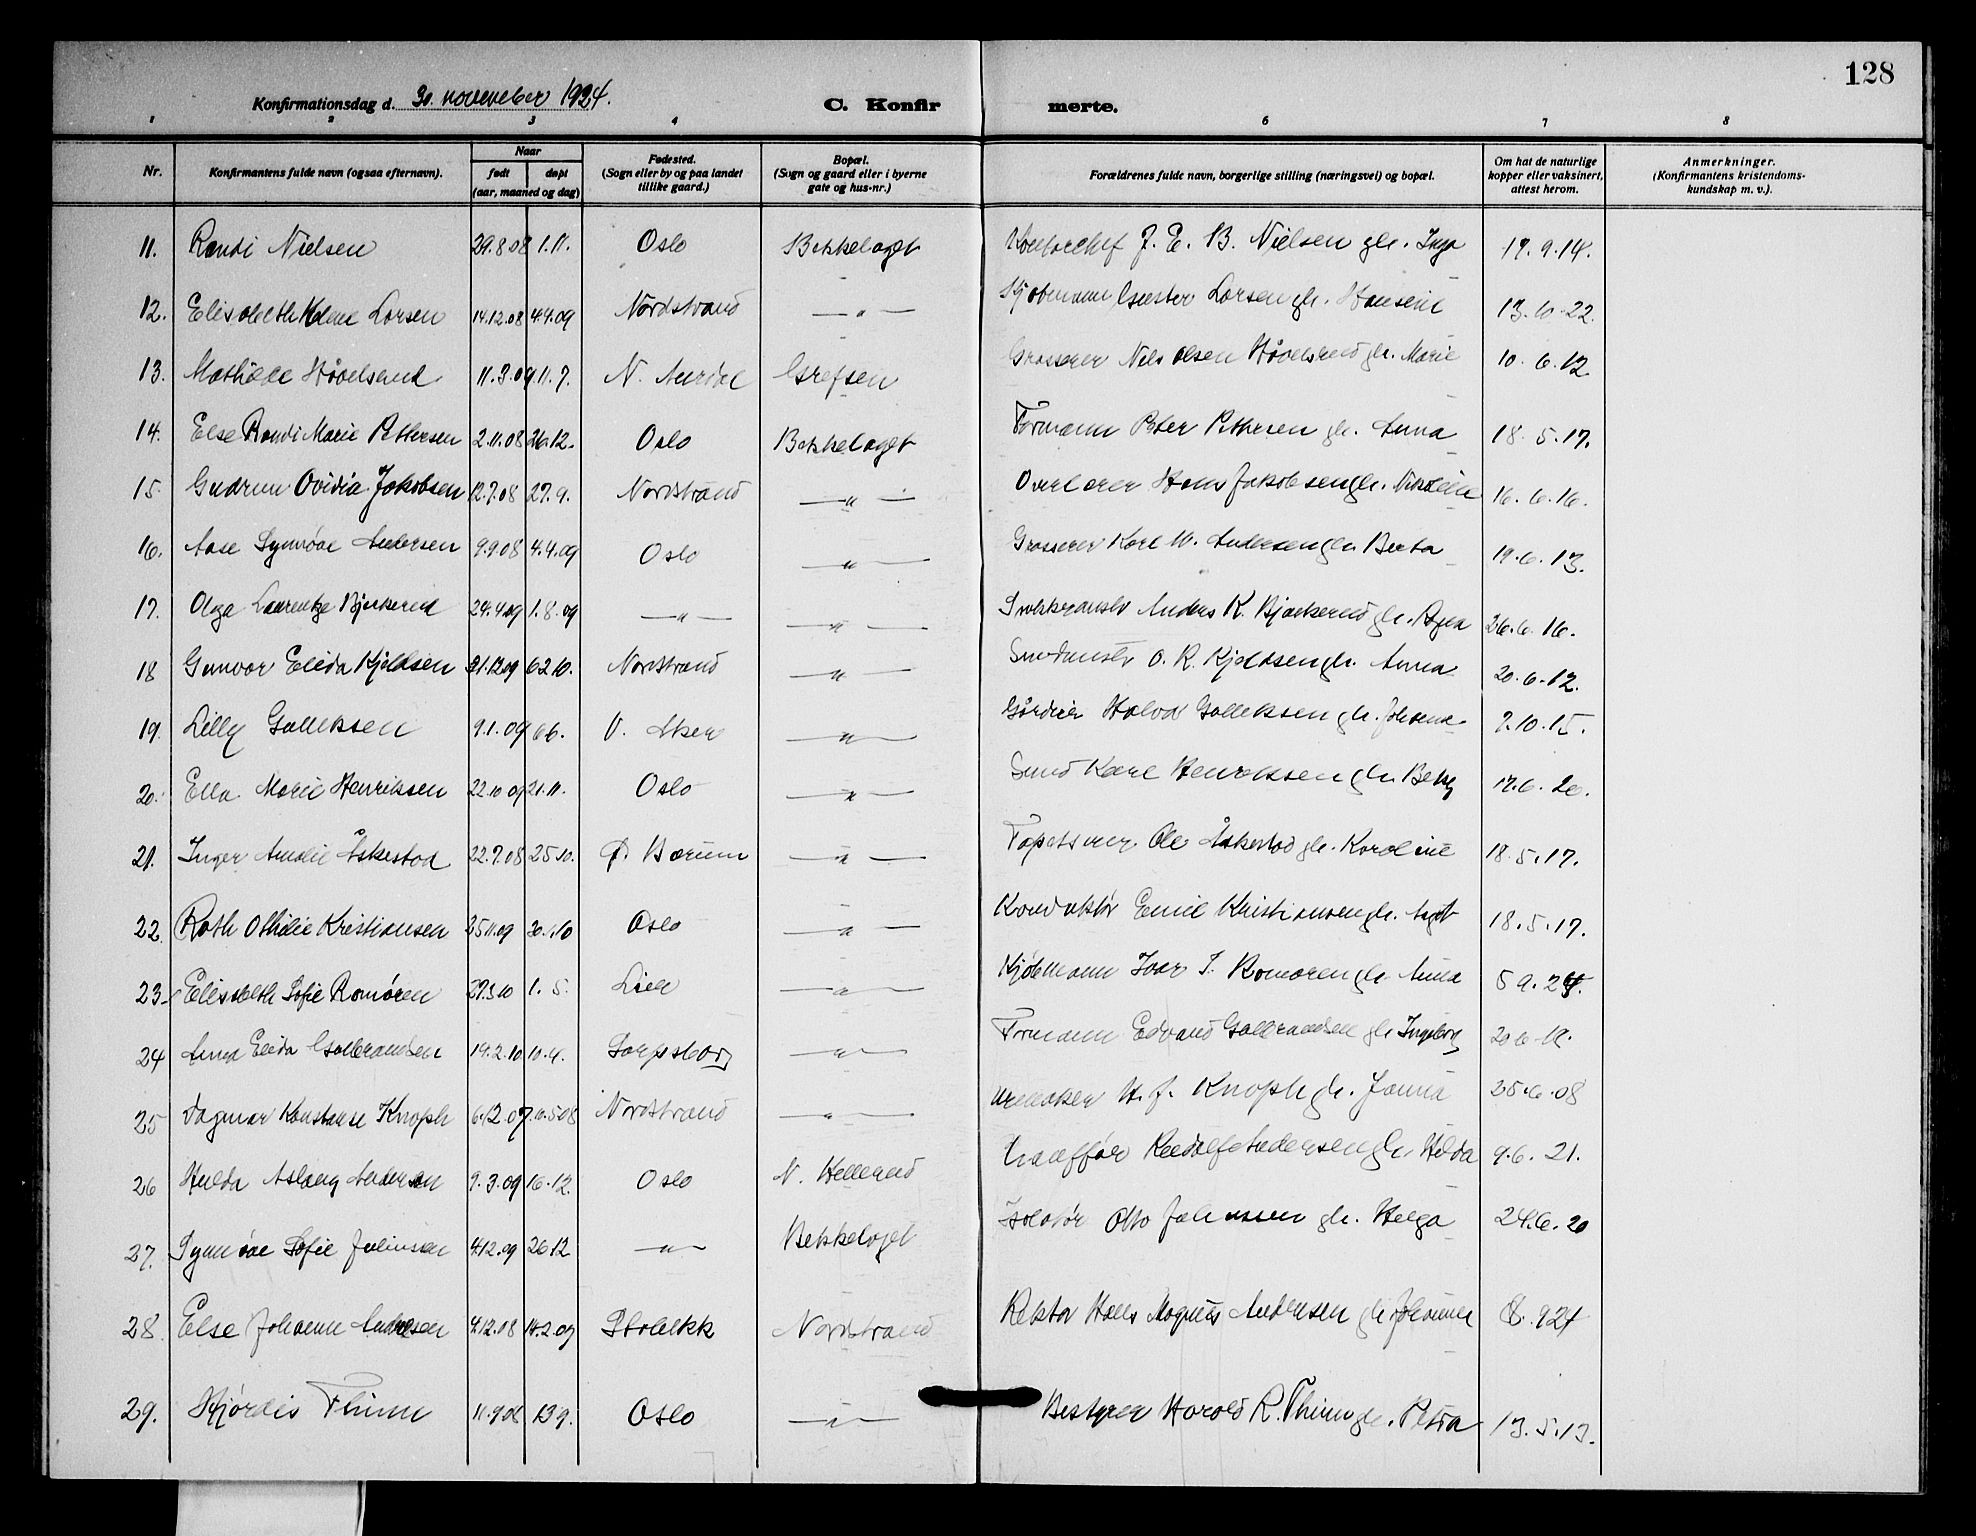 128
Konfirmationsdag d. 30. november 1924. C. Konfir merte.
1 2 3 4 6 7 8
Nr. Konfirmantens fulde navn (ogsaa efternavn). Naar født døpt (aar, maaned og dag) Fødested. (Sogn eller by og paa landet tillike gaard.) Bopæl. (Sogn og gaard eller i byerne gate og hus-nr.) Forældrenes fulde navn, borgerlige stilling (næringsvei) og bopæl. Om hat de naturlige kopper eller vaksinert, attest herom. Anmerkninger. (Konfirmantens kristendoms- kundskap m. v.).
11. Randi Nielsen 29.8.08 1.11. Oslo Bekkelaget Kontorchef J. E. B. Nielsen gh. Inga 17.9.14.
12. Elisabeth Larsen 14.12.08 4.4.09 Nordstrand — " — Kjøbmann Larsen gh. Hansine 13.10.22.
13. Mathilde Høvelsrud 11.3.09 11.7. N. Aurdal Grefsen Grosserer Nels Olsen Høvelsrud gh. Marie 10.6.12.
14. Else Randi Marie Pettersen 2.11.08 26.12. Oslo Bekkelaget Formann Peter Pettersen gh. Anna 18.5.17.
15. Gudrun Ovidia Jakobsen 12.7.08 27.9. Nordstrand — " — Overlærer Hans Jakobsen gh. Nikoline 16.6.16.
16. Aase Synnøve Andersen 9.9.08 4.4.09 Oslo — " — Grosserer Karl W. Andersen gh. Berta 19.6.13.
17. Olga Laurentze Bjerkerud 24.4.09 1.8.09 — " — — " — Anders K. Bjerkerud gh. 26.6.16.
18 Gunvor Elida Kjeldsen 31.12.09 6.2.10. Nordstrand — " — O. R. Kjeldsen gh. Anna 20.6.12.
19. Lilly Gulleksen 9.1.09 6.6. V. Aker — " — Halvor Gulleksen gh. 7.10.15.
20. Ella Marie Henriksen 22.10.09 21.11. Oslo — " — Karl Henriksen gh. Betsy 17.6.20.
21. Inger Amalie Askestad 22.7.08 25.10. Ø. Bærum — " — Tapetserer Ole Askestad gh. Karoline 18.5.17.
22. Ruth Othilie Kristiansen 25.11.09 30.1.10 Oslo — " — Konduktør Emil Kristiansen gh. Agot 18.5.17.
23. Elisabeth Sofie Romøren 27.3.10 1.5. Lier — " — Kjøbmann Ivar I. Romøren gh. Anna 5.9.24.
24 Anna Elida Gulbrandsen 19.2.10 10.4. Sarpsborg — " — Formann Edvard Gulbrandsen gh. Ingeborg
25 Dagmar Konstanse Knoph 6.12.07 Nordstrand — " — Urmaker H. J. Knoph gh. 25.6.08
26 Hulda Aslaug Andersen 9.3.09 16.12. Oslo N. Hellerud Chauffør Rudolf Andersen gh. Hilda 9.6.21.
27. Synnøve Sofie 4.12.09 26.12 — " — Bekkelaget Isolatør Otto gh. Helga 24.6.20
28. Else Johanne Andersen 4.12.08 14.2.09 Stokke Nordstrand Rektor Magnus Andersen gh. Johanne
29. Hjørdis Thime 11.9.08 13.9. Oslo — " — Bestyrer Harald R. Thime gh. Petra 13.5.13.